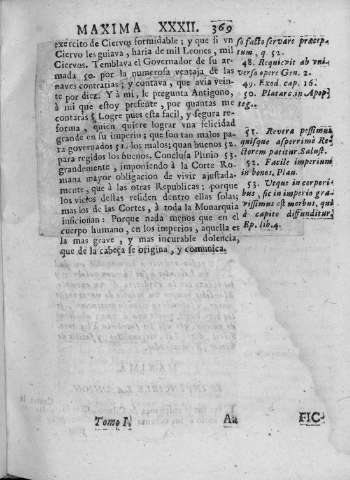 MAXIMA XXXII. 369
exercito de Ciervos formidable; y que si vn
Ciervo les guiava, haria de mil Leones, mil
Ciervos. Temblava el Governador de su ar-
mada 50. por la numerosa ventaja de las
naves contrarias; y contava, que avia vein-
te por diez. Y à mi, le pregunta Antigono,
à mi que estoy presente, por quantas me
contaràs? Logre pues esta facil, y segura re-
forma, quien quisre lograr vna felicidad
grande en su imperio; que son tan malos pa-
ra governados 51. los malos, quan buenos 52.
para regidos los buenos. Conclusa Plinio 53.
grandemente, imponiendo à la Corte Ro-
mana mayor obligacion de vivir ajustada-
mente, que à las otras Republicas; porque
los vicios destas residen dentro ellas solas;
mas los de las Cortes, à toda la Monarquia
inficionan: Porque nada menos que en el
cuerpo humano, en los imperios, aquella es
la mas grave, y mas incurable dolencia,
que de la cabeça se origina, y comunica.
so facto servare præcep-
tum, q. 52.
48. Requievit ab vni-
verso opere Gen. 2.
49. Exod. cap. 16.
50. Platarc. in Apop.
reg.
51. Revera pessimus
quisque asperrime Re-
ctorem patitur. Salust.
52. Facile imperium
in bonos. Plau.
53. Vtque in corpori-
bus, sic in imperio gra-
vissimus est morbus, qui
à capite diffunditur,
Ep. lib. 4.
Tomo I. Aa FIC-